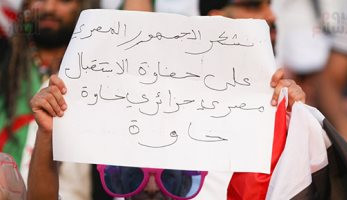 نشكر الجمهور المصري
على حفاوة الاستقبال
مصري جزائري خاوة
خاوة